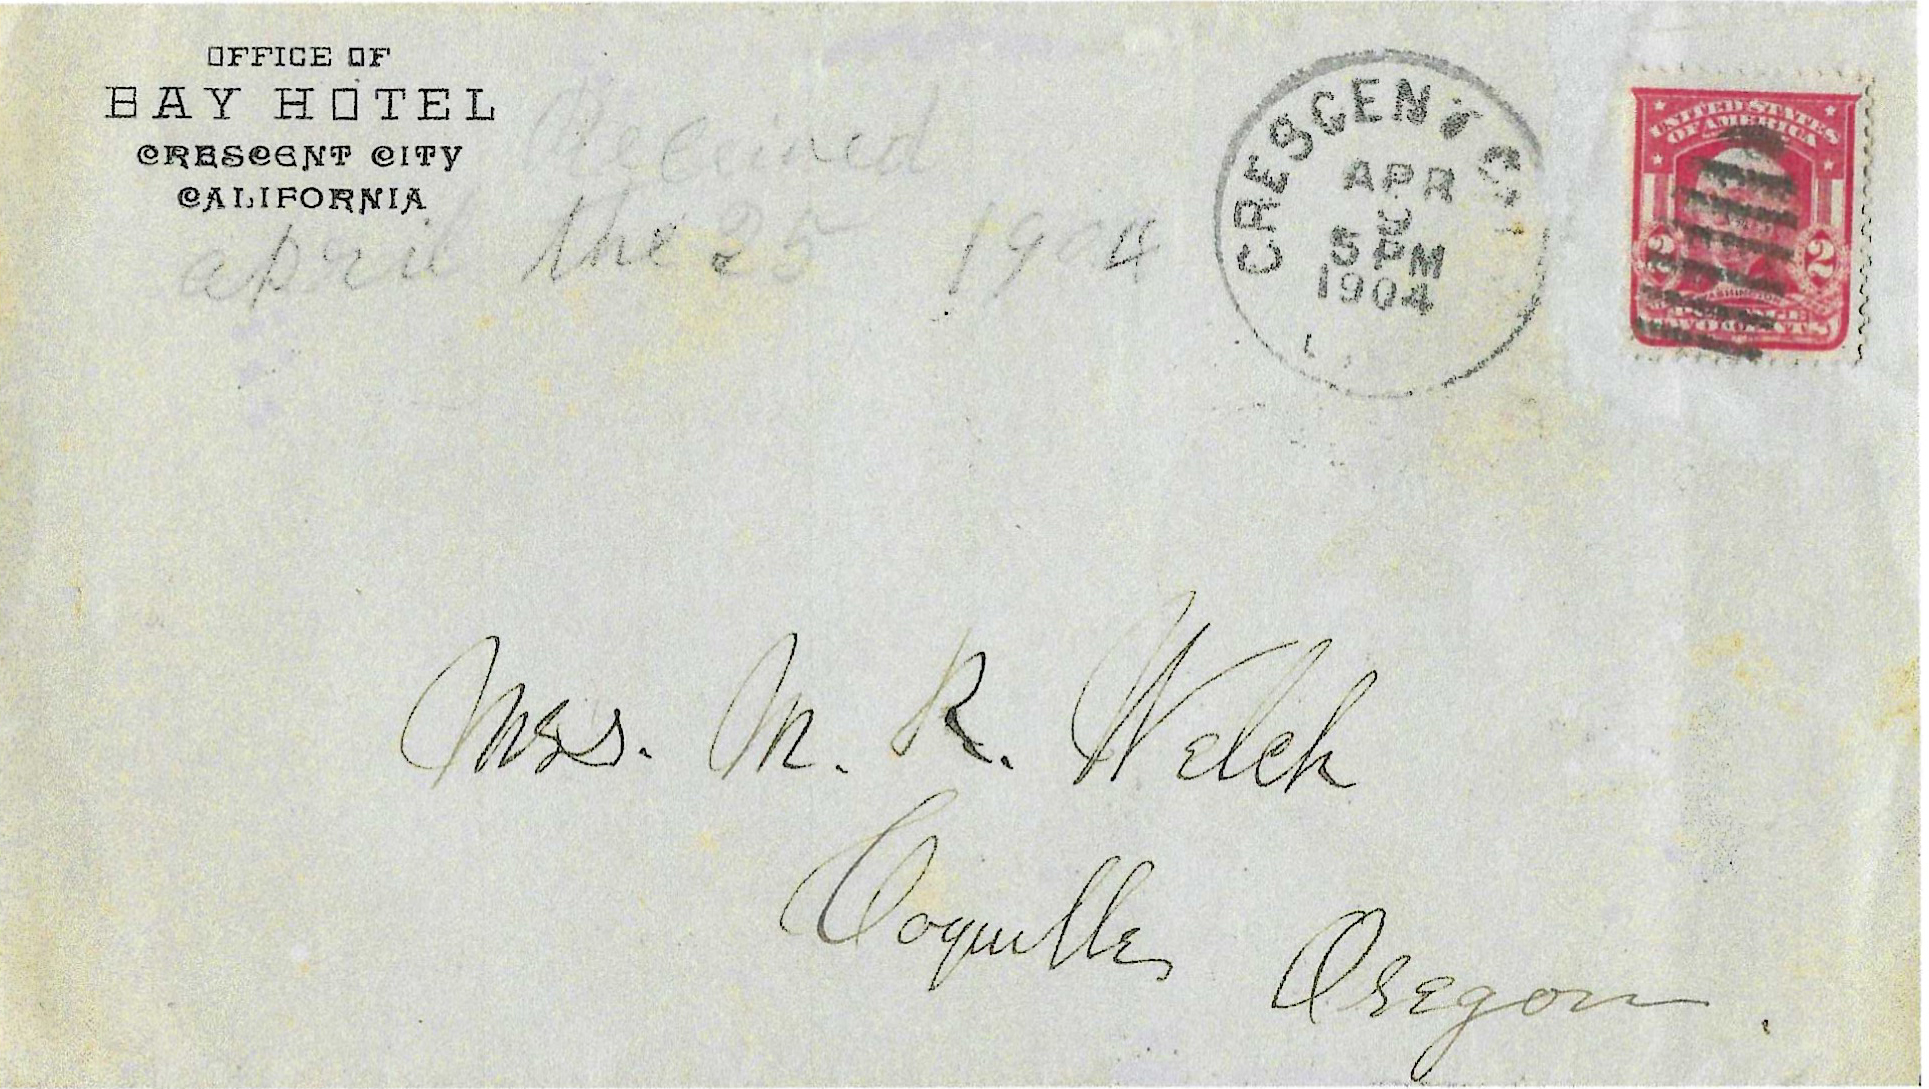 OFFICE OF
BAY HOTEL
CRESCENT CITY
CALIFORNIA
Received
april the 25 1904
CRESCENT
APR
5 PM
1904
UNITED STATES
OF AMERICA
2 2
TWO CENTS
Mrs. M. R. Welch
Coquille,
Oregon.